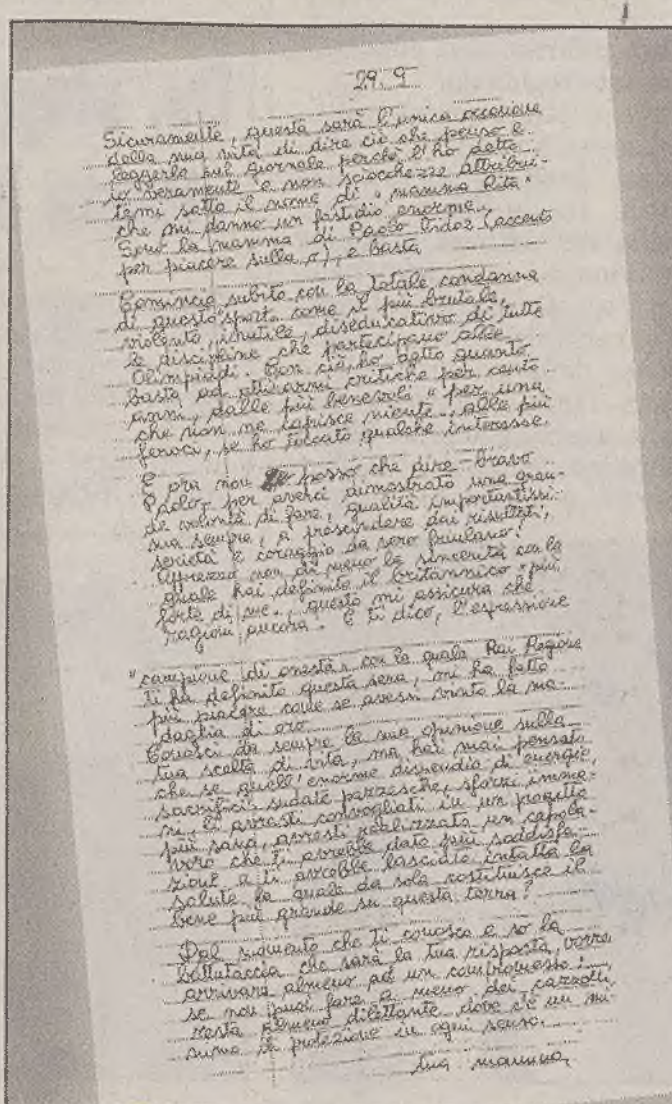 29 9
Sicuramente, questa sarà l'unica occasione
della mia vita di dire ciò che penso e
leggerlo sul giornale perché l'ho detto
io veramente e non sciocchezze attribui-
temi sotto il nome di "mamma Rita"
che mi danno un fastidio enorme.
Sono la mamma di Paolo Vidoz (accento
per piacere sulla o), e basta
Comincio subito con la totale condanna
di questo "sport" come il più brutale,
violento, inutile, diseducativo di tutte
le discipline che partecipano alle
Olimpiadi. Con ciò, ho detto quanto
basta ad attirarmi critiche per cento
anni, dalle più benevole "per una
che non ne capisce niente", alle più
feroci, se ho toccato qualche interesse.
E ora non posso che dire - bravo
Paolo, per averci dimostrato una gran-
de volontà di fare, qualità importantissi-
ma sempre, a prescindere dai risultati,
serietà e coraggio da vero friulano!
Apprezzo non di meno la sincerità con la
quale hai definito il britannico "più
forte di me", questo mi assicura che
ragioni ancora. E ti dico, l'espressione
"campione di onestà" con la quale Rai Regione
ti ha definito questa sera, mi ha fatto
più piacere come se avessi vinto la me-
daglia di oro
Conosci da sempre la mia opinione sulla
tua scelta di vita, ma hai mai pensato
che se quell'enorme dispendio di energie,
sacrifici, sudate pazzesche, sforzi imma-
ni, li avresti convogliati in un progetto
più sano, avresti realizzato un capola-
voro che ti avrebbe dato più soddisfa-
zioni e ti avrebbe lasciato intatta la
salute la quale da sola costituisce il
bene più grande su questa terra?
Dal momento che ti conosco e so la
battutaccia che sarà la tua risposta, vorrei
arrivare almeno ad un compromesso:
se non puoi fare a meno dei cazzotti,
resta almeno dilettante dove c'è un mi-
nimo di protezione in ogni senso.
tua mamma